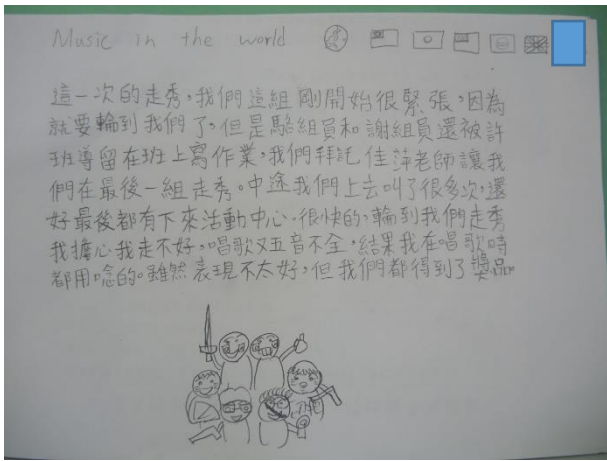 Music in the world
這一次的走秀,我們這組剛開始很緊張,因為
就要輪到我們了,但是駱組員和謝組員還被許
班導留在班上寫作業,我們拜託佳萍老師讓我
們在最後一組走秀。中途我們上去叫了很多次,還
好最後都有下來活動中心。很快的,輪到我們走秀
我擔心我走不好,唱歌又五音不全,結果我在唱歌時
都用唸的。雖然表現不太好,但我們都得到了獎品。